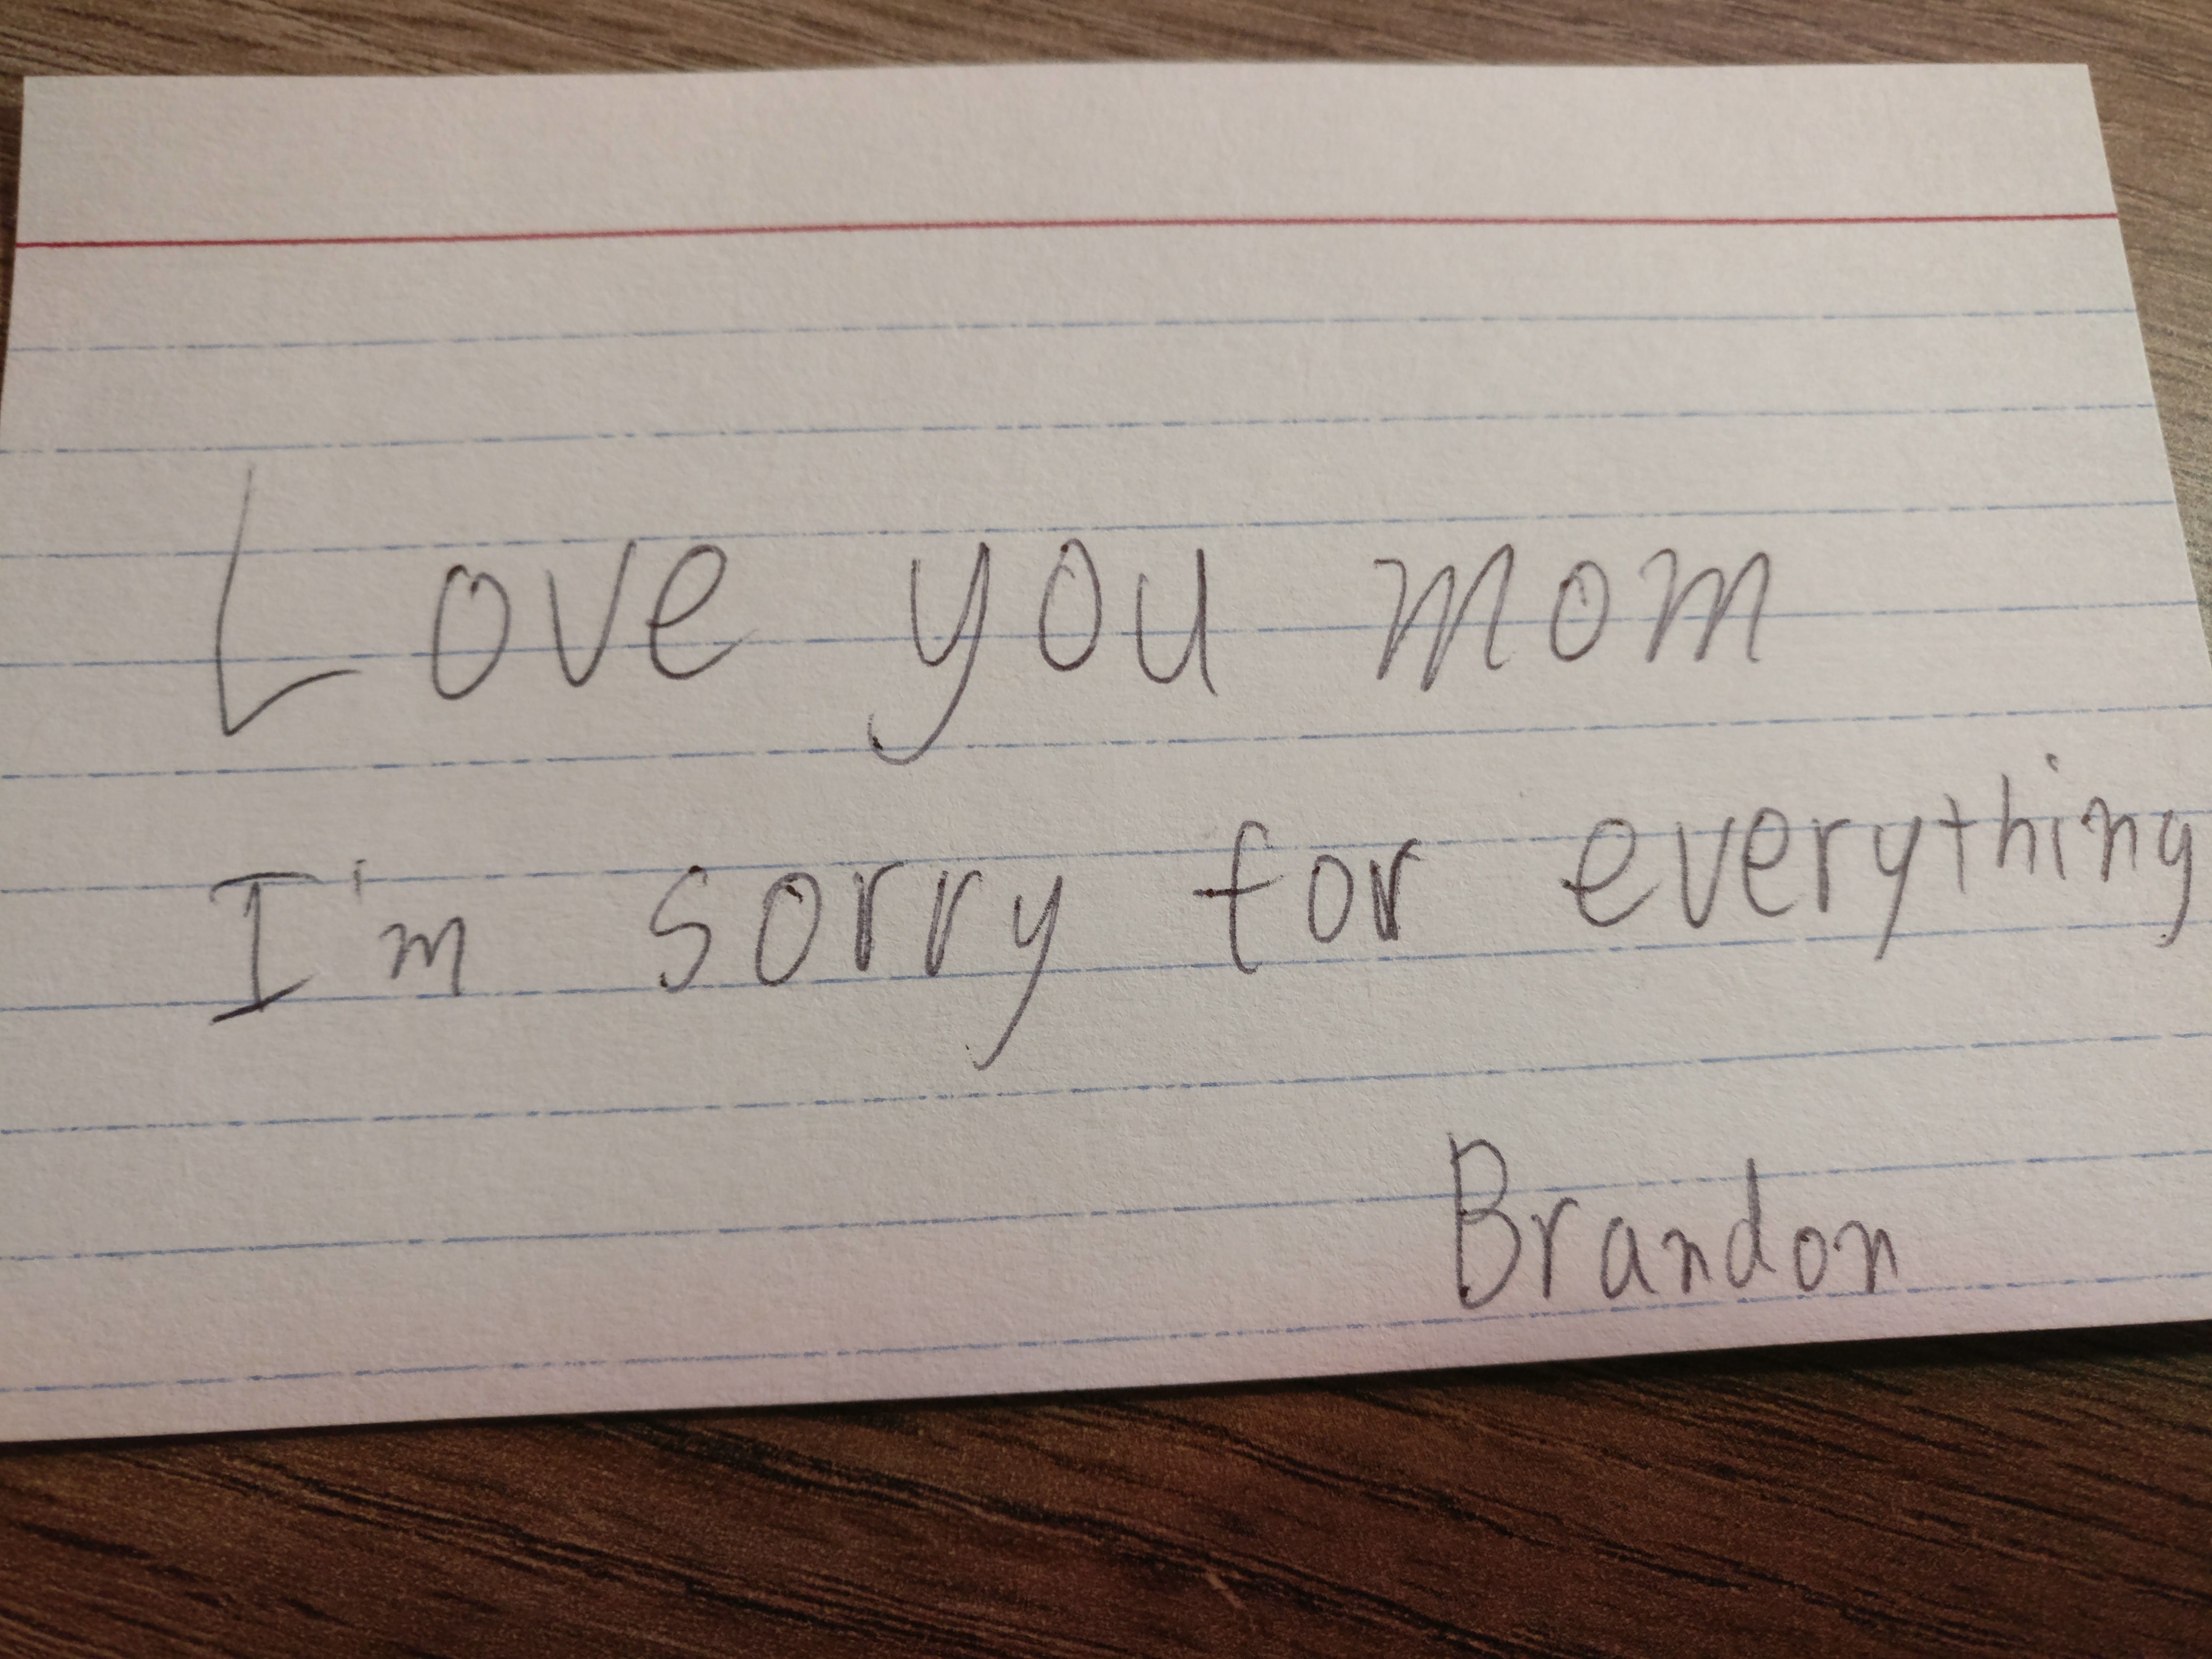 Love you mom
I'm sorry for everything
Brandon